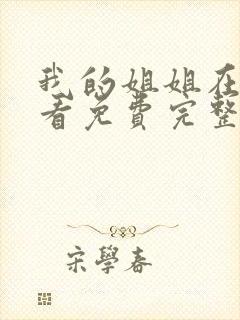 我的姐姐在
看免费完整
宋學春